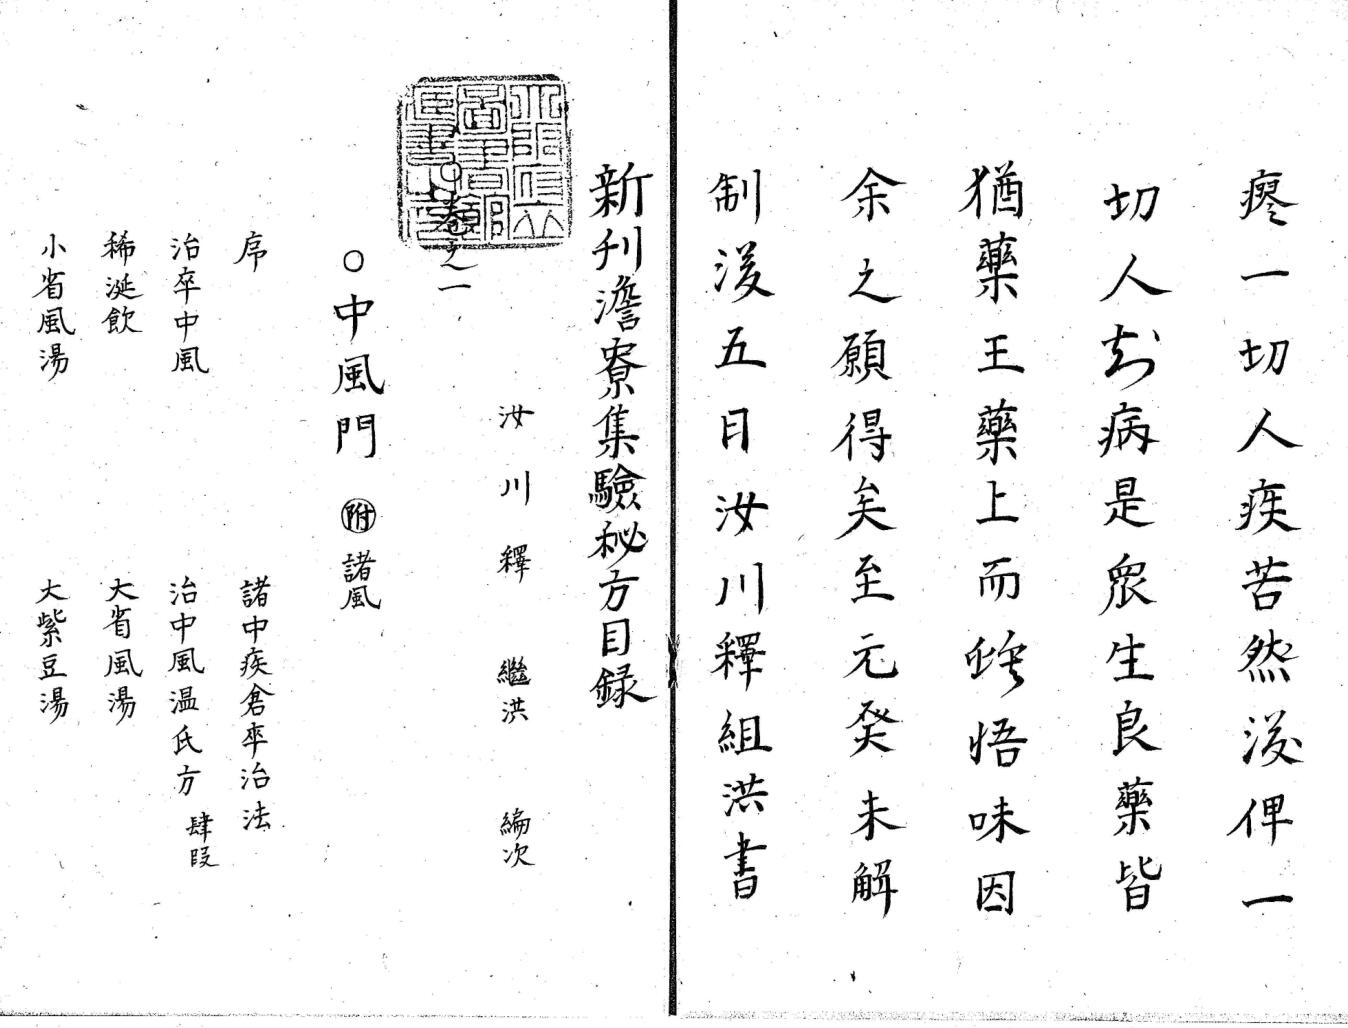 瘳一切人疾苦然後俾一
切人知病是眾生良藥皆
猶藥王藥上而能悟味因
余之願得矣至元癸未解
制後五日汝川釋組洪書
新刊澹寮集驗秘方目録
汝川釋 繼洪 編次
○卷之一
○中風門 附 諸風
序 諸中疾倉卒治法
治卒中風 治中風温氏方 肆段
稀涎飲 大省風湯
小省風湯 大紫豆湯